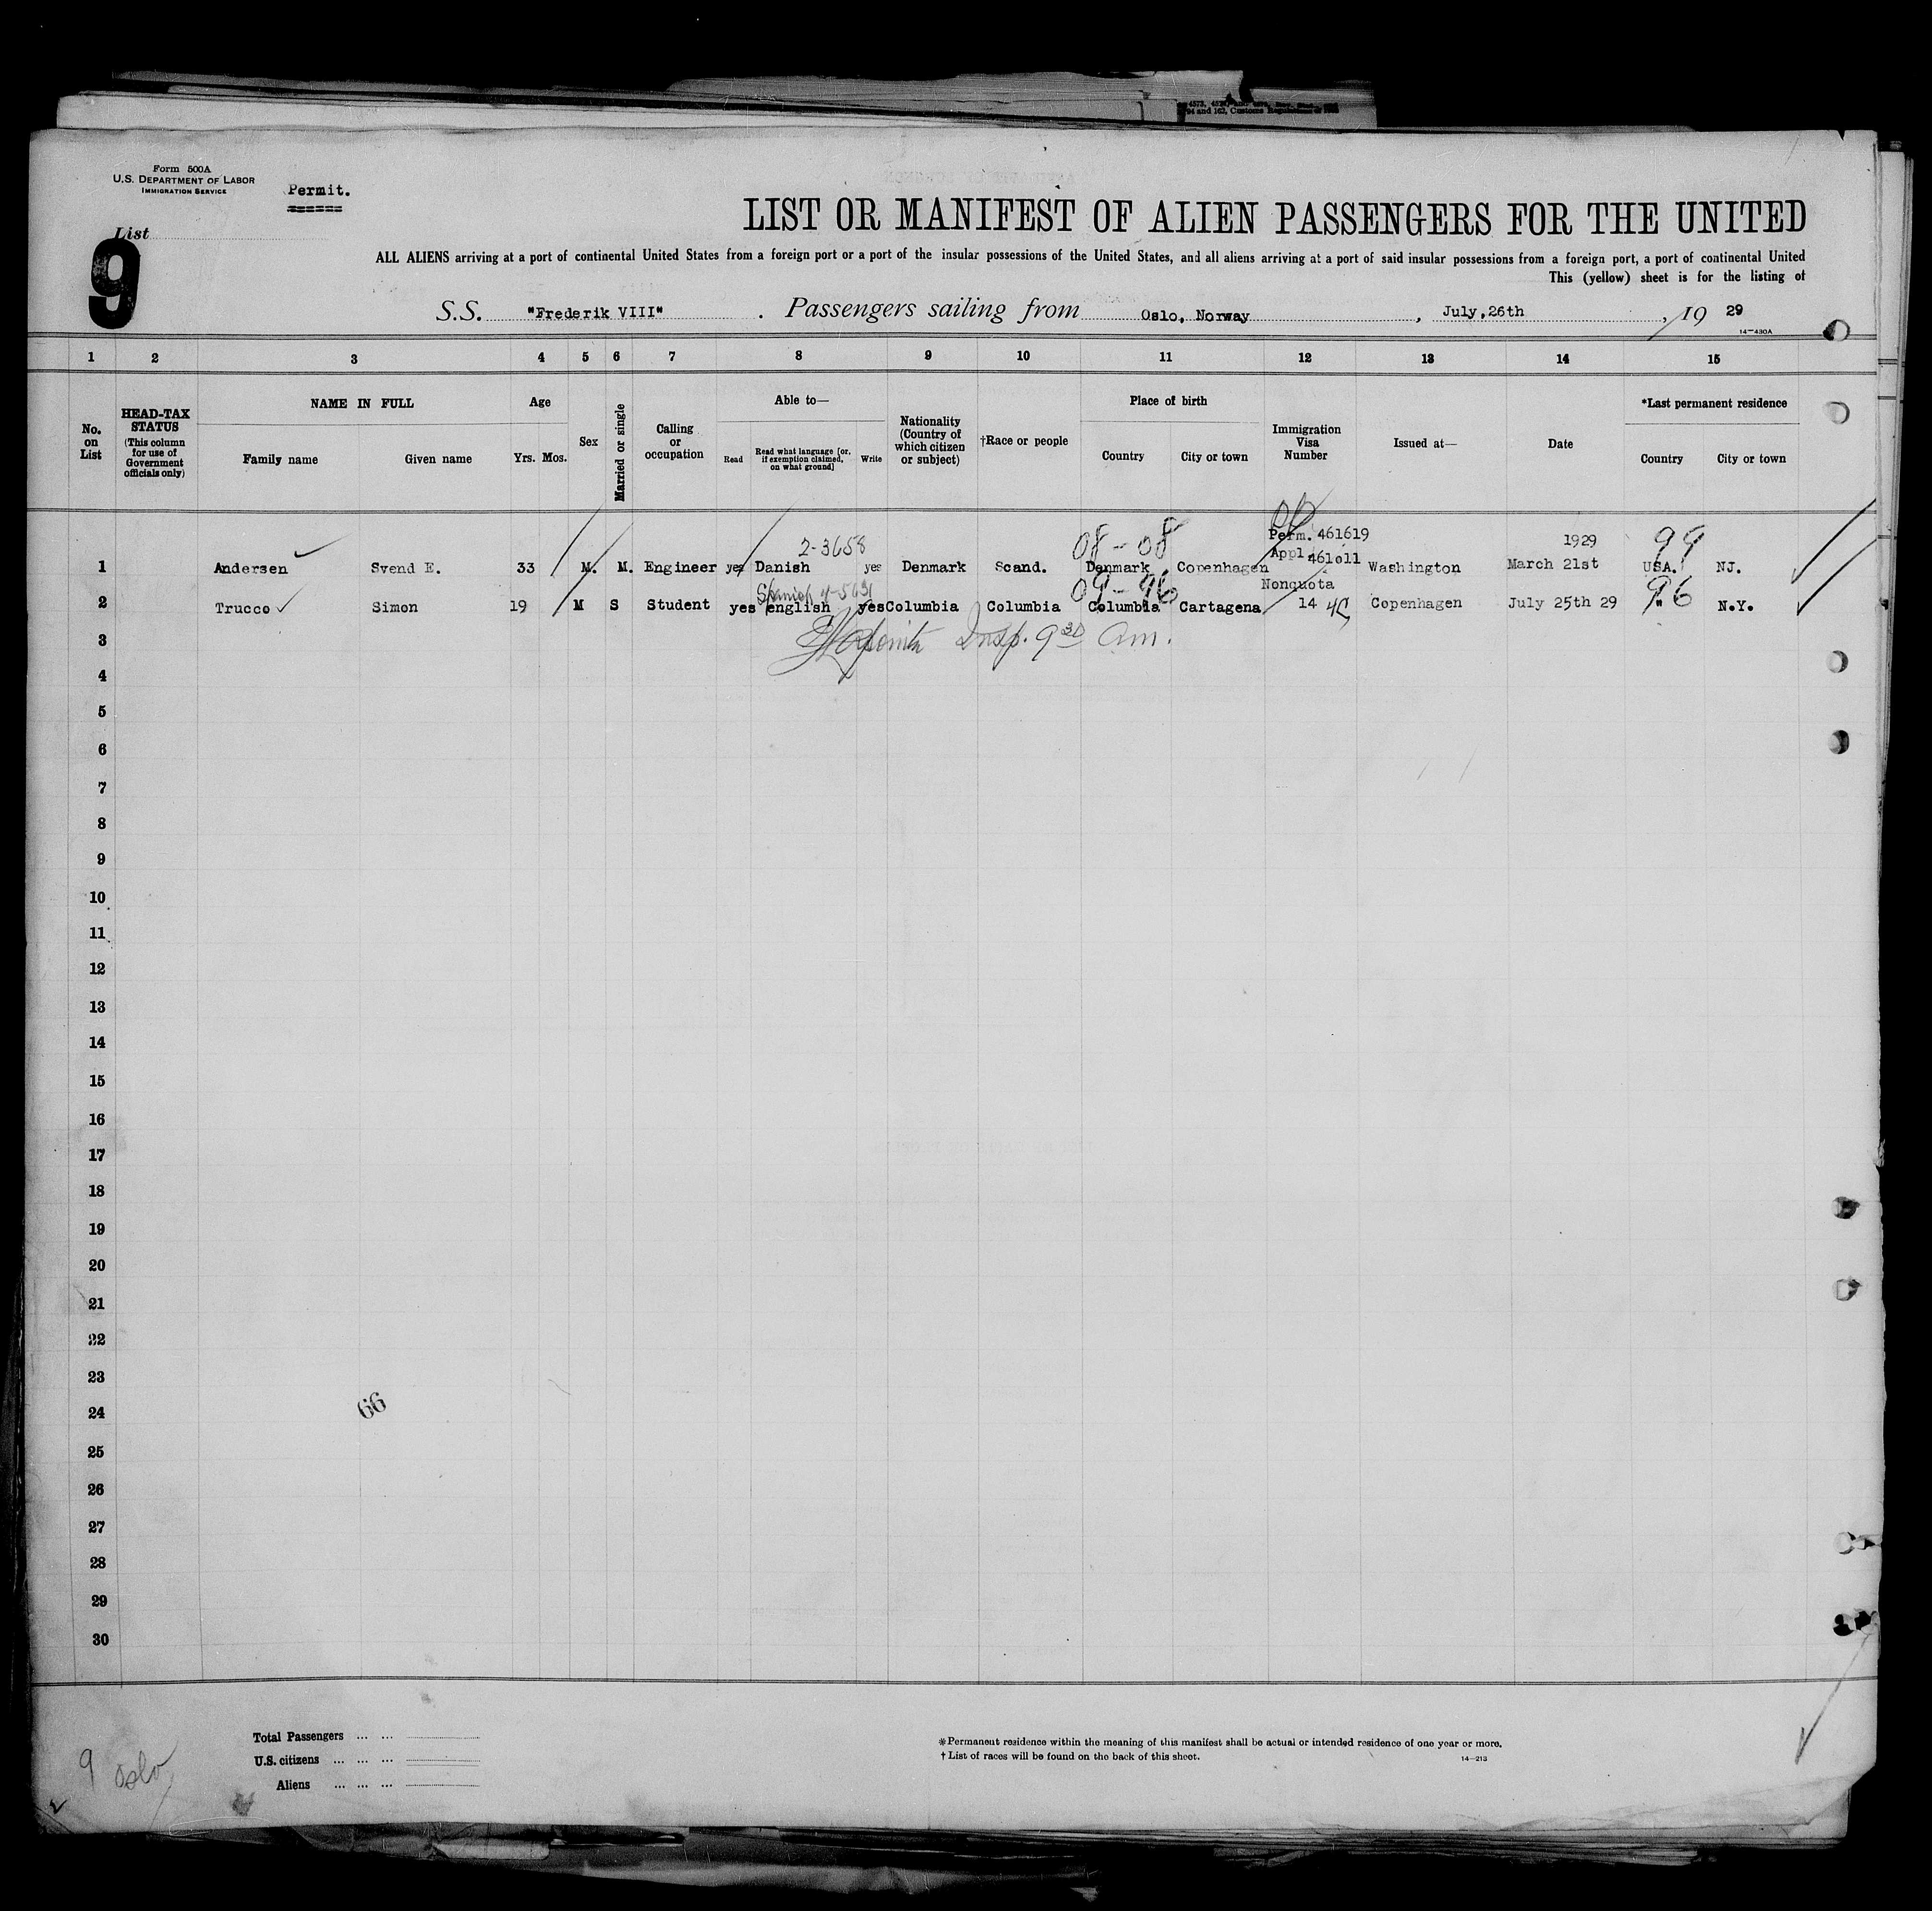 Form 500A
U.S. DEPARTMENT OF LABOR
IMMIGRATION SERVICE
Permit.
List
9
LIST OR MANIFEST OF ALIEN PASSENGERS FOR THE UNITED
ALL ALIENS arriving at a port of continental United States from a foreign port or a port of the insular possessions of the United States, and all aliens arriving at a port of said insular possessions from a foreign port, a port of continental United
This (yellow) sheet is for the listing of
S.S. "Frederik VIII" . Passengers sailing from Oslo, Norway , July,26th , 19 29
14-430A
1 2 3 4 5 6 7 8 9 10 11 12 13 14 15
No. on List
HEAD-TAX STATUS (This column for use of Government officials only)
NAME IN FULL
Family name Given name
Age
Yrs. Mos.
Sex
Married or single
Calling or occupation
Able to—
Read Read what language [or, if exemption claimed, on what ground] Write
Nationality (Country of which citizen or subject)
†Race or people
Place of birth
Country City or town
Immigration Visa Number
Issued at—
Date
*Last permanent residence
Country City or town
2-3658 08-08 Perm. 461619 1929 99
1 Andersen Svend E. 33 M. M. Engineer yes Danish yes Denmark Scand. Denmark Copenhagen Appl. 461011 Washington March 21st USA. NJ.
Spanish 09-96 Nonquota 96
2 Trucco Simon 19 M S Student yes english yes Columbia Columbia Columbia Cartagena 14 Copenhagen July 25th 29 " N.Y.
3 Insp. 9 3D am.
4
5
6
7
8
9
10
11
12
13
14
15
16
17
18
19
20
21
22
23
24 66
25
26
27
28
29
30
Total Passengers ... ...
U.S. citizens ... ... ...
Aliens ... ... ...
9 oslo
*Permanent residence within the meaning of this manifest shall be actual or intended residence of one year or more.
† List of races will be found on the back of this sheet. 14-213